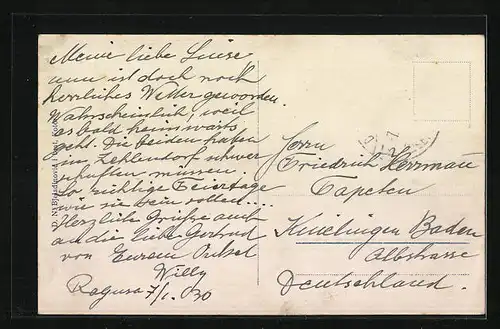 Meine liebe Luise
nun ist doch noch
herrliches Wetter geworden.
Wahrscheinlich, weil
es bald heimwärts
geht. Die beiden haben
in Zehlendorf schwer
schuften müssen
So richtige Feiertage
wie sie sein sollen....
Herzliche Grüsse auch
an die liebe Gertrud
von Eurem
Willy
Ragusa 7/I. 030
Herrn
Friedrich Herrmann
Tapeten
Knielingen Baden
Albstrasse
Deutschland.